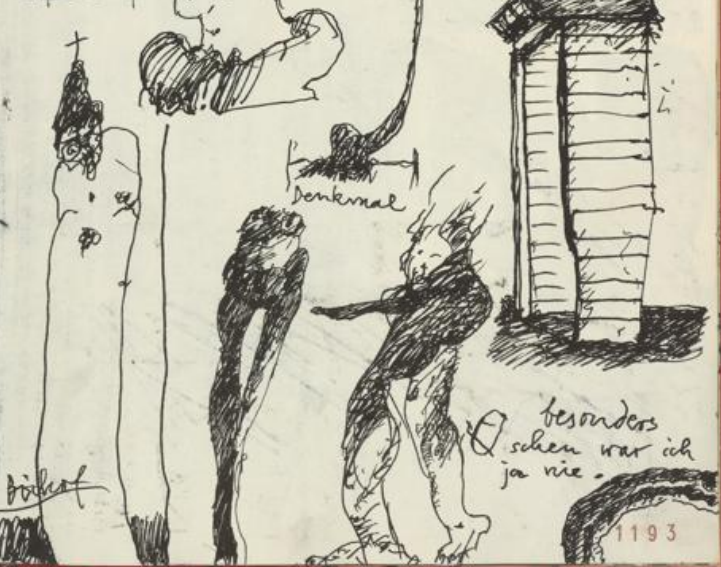 Denkmal
besonders
schen war ich
ja nie.
Bischof
1193